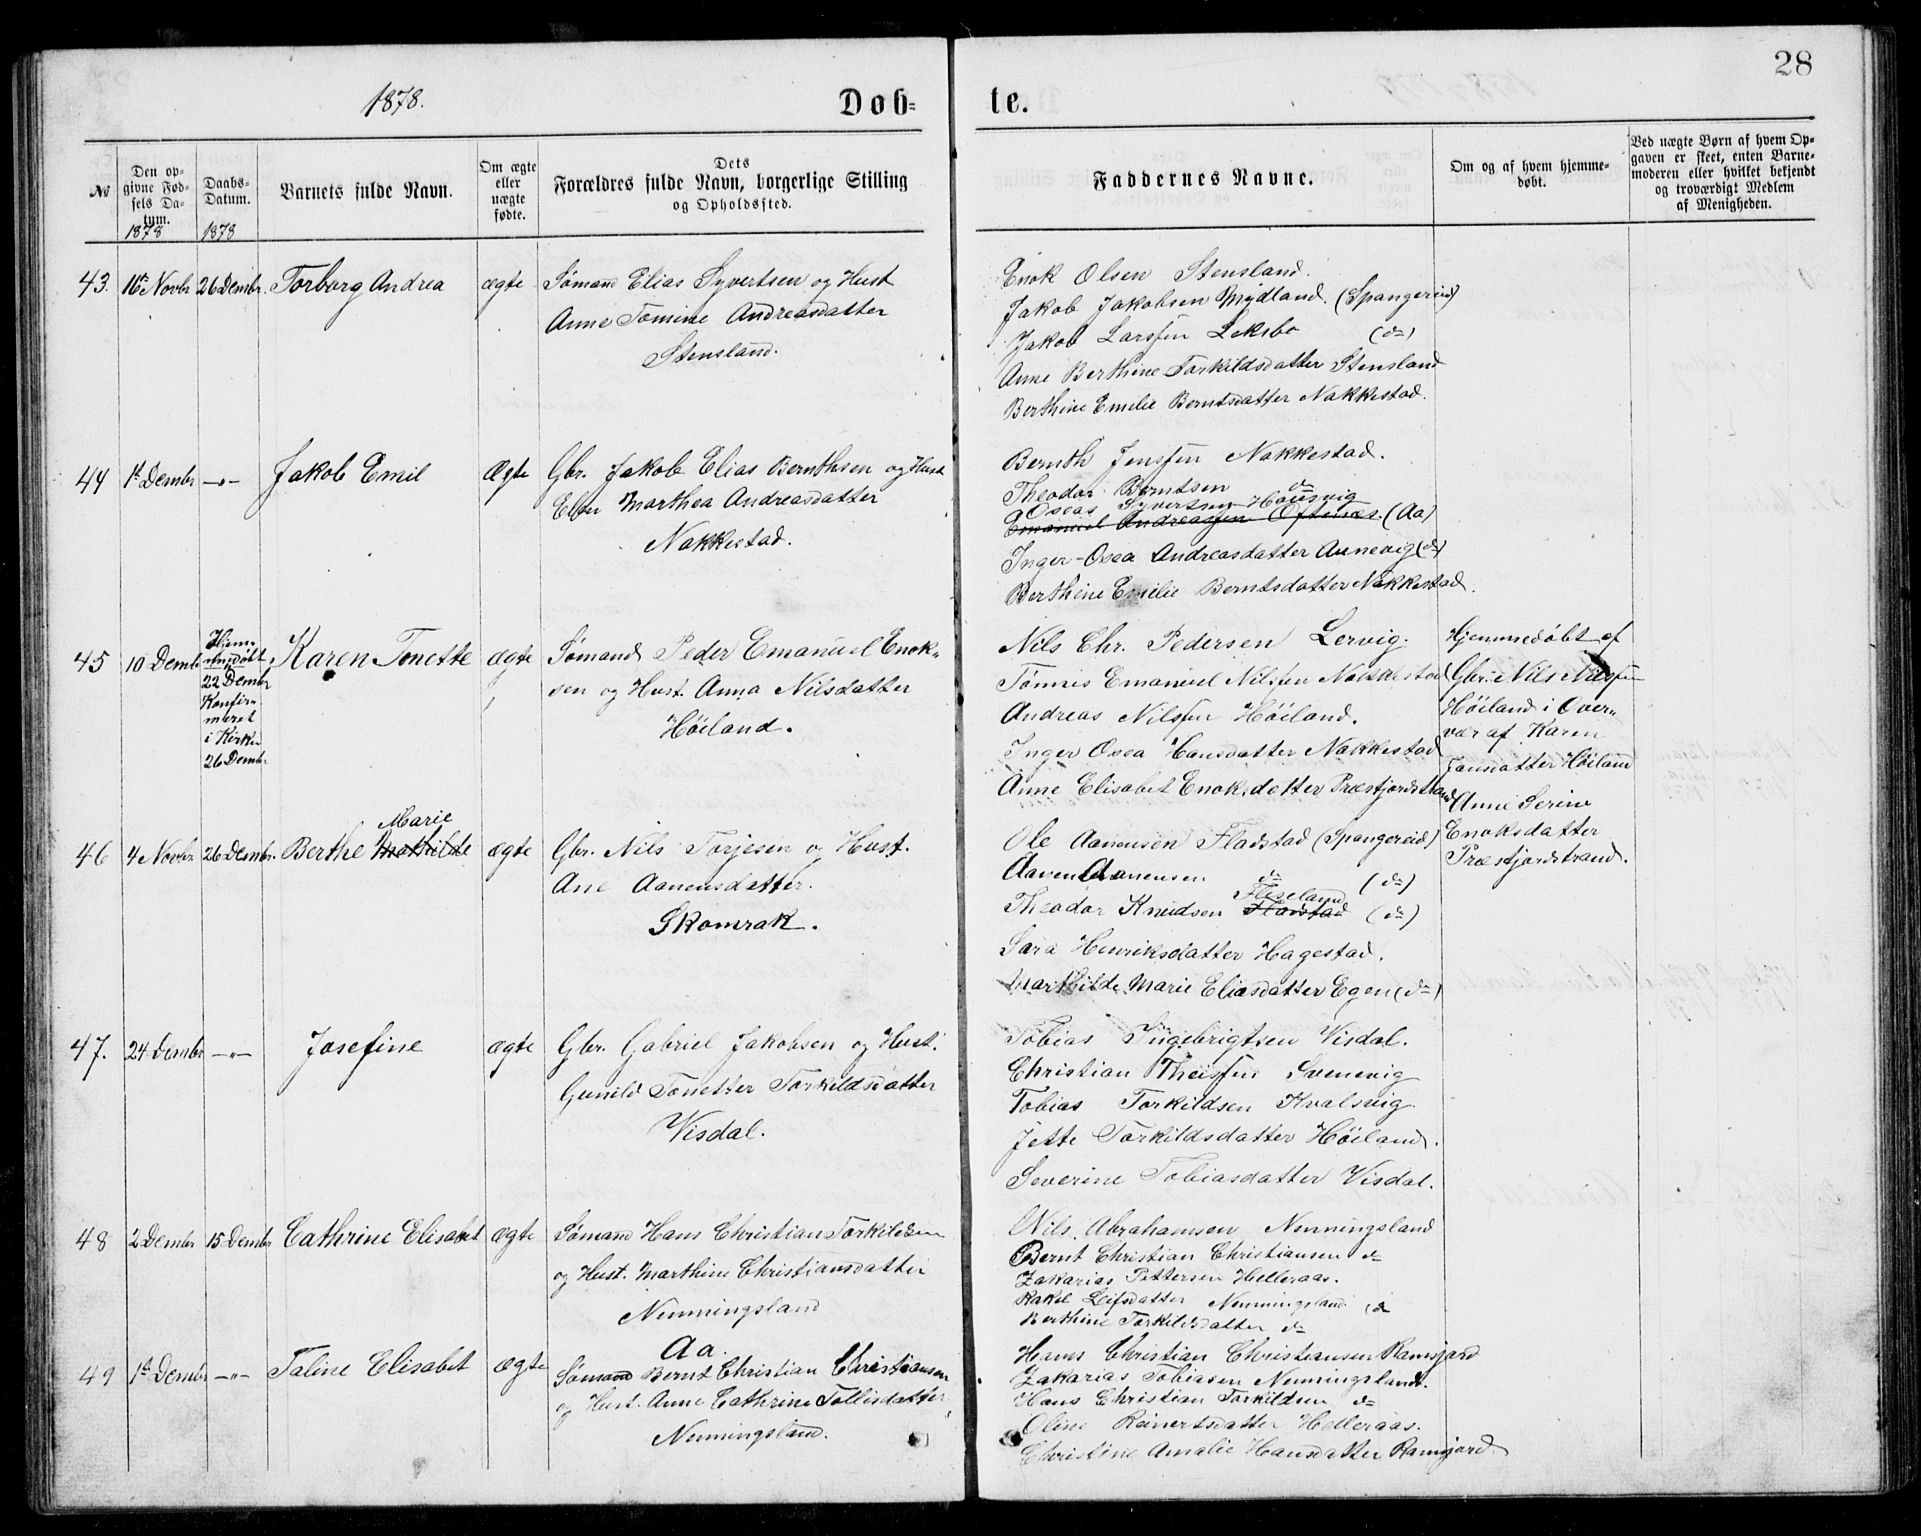 28
1878.
Døb-
te.
No
Den op-
givne Fød-
sels Da-
tum.
1878
Daabs-
Datum.
1878
Barnets fulde Navn.
Om ægte
eller
uægte
fødte.
Dets
Forældres fulde Navn, borgerlige Stilling
og Opholdssted.
Faddernes Navne.
Om og af hvem hjemme-
døbt.
Ved uægte Børn af hvem Op-
gaven er skeet, enten Barne-
moderen eller hvilket bekjendt
og troværdigt Medlem
af Menigheden.
43. 16de Novbr 26 Dembr. Torborg Andrea ægte
Sømand Elias Syvertsen og Hust
Anne Tomine Andreasdatter
Stensland.
Enok Olsen Stensland.
Jakob Jakobsen Mydland. (Spangereid)
Jakob Larssen Leksbo (do)
Anne Berthine Torkildsdatter Stensland
Berthine Emilie Berntsdatter Nakkestad.
44 1st Dembr -"- Jakob Emil Ægte
Gbr. Jakob Elias Bernthsen og Hust
Ellen Marthea Andreasdatter
Nakkestad.
Bernth Jenssen Nakkestad.
Theodor Berntsen do
Oseas Syvertsen Hausvig
Emanuel Andreassen Oftenes. (Aa)
Inger Osea Andreasdatter Aunevig (do)
Berthine Emilie Berntsdatter Nakkestad.
45 10 Dembr
Hjem-
medøbt
22 Dembr
Konfir-
meret
i Kirken
26 Dembr
Karen Tonette ægte
Sømand Peder Emanuel Enok-
sen og Hust. Anna Nilsdatter
Høiland.
Nils Chr. Pedersen Lervig.
Tønnes Emanuel Nilssen Nakkestad
Andreas Nilssen Høiland.
Inger Osea Hansdatter Nakkestad
Anne Elisabet Enoksdatter Præstfjordstrand
Hjemmedøbt af
Gbr. Nils Nilssen
Høiland i Over-
vær af Karen
Hansdatter Høiland
Anne Serine
Enoksdatter
Præstfjordstrand.
46 4 Novbr 26 Dembr. Berthe Mathilde ægte
Marie
Gbr. Nils Torjesen og Hust.
Ane Aanensdatter.
Skomrak.
Ole Aanensen Fladstad (Spangereid)
Aanen Aanensen do (do)
Fliseland
Theodor Knudsen Fladstad (do)
Sara Henriksdatter Hagestad.
Marthilde Marie Eliasdatter Egen (do)
47. 24 Dembr -"- Josefine ægte
Gbr. Gabriel Jakobsen og Hust.
Gunild Tonette Torkildsdatter
Visdal.
Tobias Ingebrigtsen Visdal.
Christian Theissen Svenevig
Tobias Torkildsen Kvalsvig.
Jette Torkildsdatter Høiland.
Severine Tobiasdatter Visdal.
48 2 Dembr 15 Dembr Cathrine Elisabet ægte
Sømand Hans Christian Torkildsen
og Hust. Marthine Christiansdatter
Nenningsland
Nils Abrahamsen Nenningsland
Bernt Christian Christiansen do
Zakarias Pettersen Helleraas.
Rakel Leifsdatter Nenningsland
Berthine Torkildsdatter do
49 1st Dembr -"- Taline Elisabet ægte
Aa.
Sømand Bernt Christian Christiansen
og Hust. Anne Cathrine Tollisdatter
Nenningsland.
Hans Christian Christiansen Ramsjord
Zakarias Tobiasen Nenningsland.
Hans Christian Torkildsen do
Oline Reinertsdatter Helleraas.
Christine Amalie Hansdatter Ramsjord.